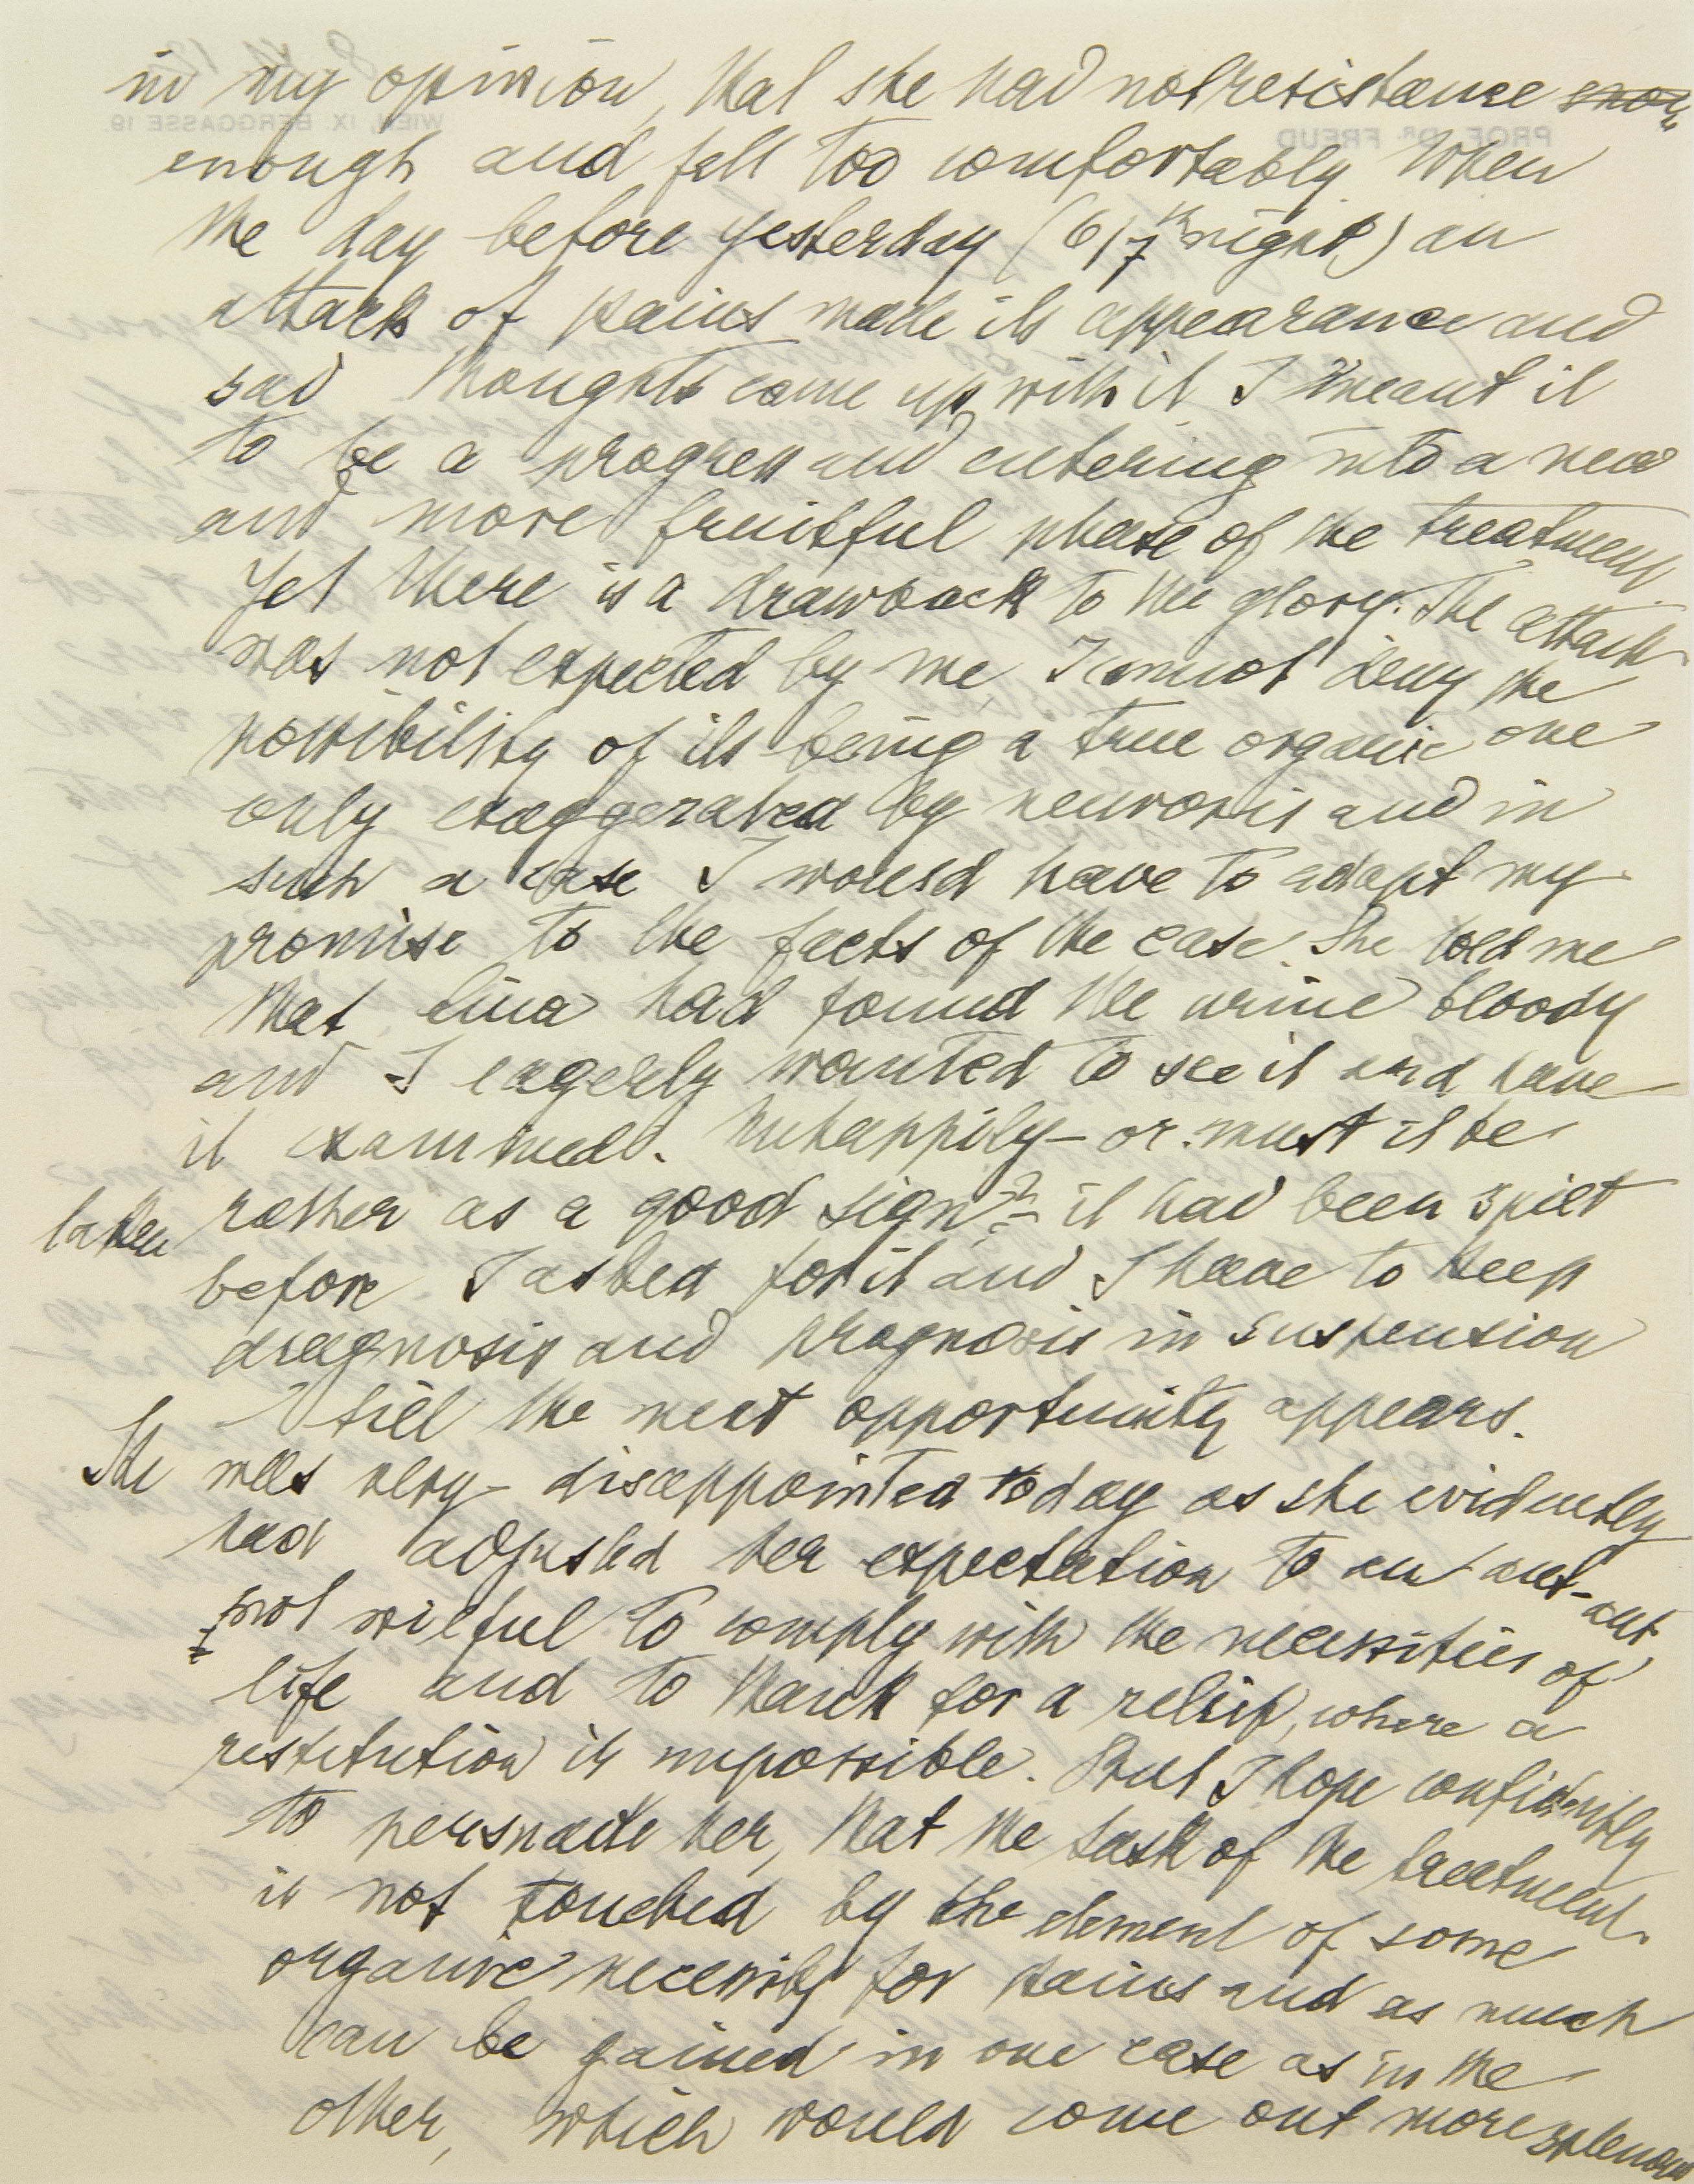 in my opinion, that she had not resistance enou
enough and felt too comfortably. When
the day before yesterday (6/7th night) an
attack of pains made its appearance and
sad thoughts came up with it I meant it
to be a progress and entering into a new
and more fruitful phase of the treatment.
Yet there is a drawback to the glory. The attack
was not expected by me, I cannot deny the
possibility of its being a true organic one
only exaggerated by neurosis and in
such a case I would have to adapt my
promise to the facts of the case. She told me
that Lina had found the urine bloody
and I eagerly wanted to see it and have
it examined. Unhappily – or must it be
taken rather as a good sign? – it had been spilt
before I asked for it and I have to keep
diagnosis and prognosis in suspension
till the next opportunity appears.
She was very disappointed today as she evidently
had adjusted her expectation to an aut-aut
not wilful to comply with the necessities of
life and to thank for a relief, where a
restitution is impossible. But I hope confidently
to persuade her, that the task of the treatment
is not touched by the element of some
organic necessity for pains and as much
can be gained in one case as in the
other, which would come out more splendid
PROF. DR. FREUD
WIEN, IX. BERGGASSE 19.